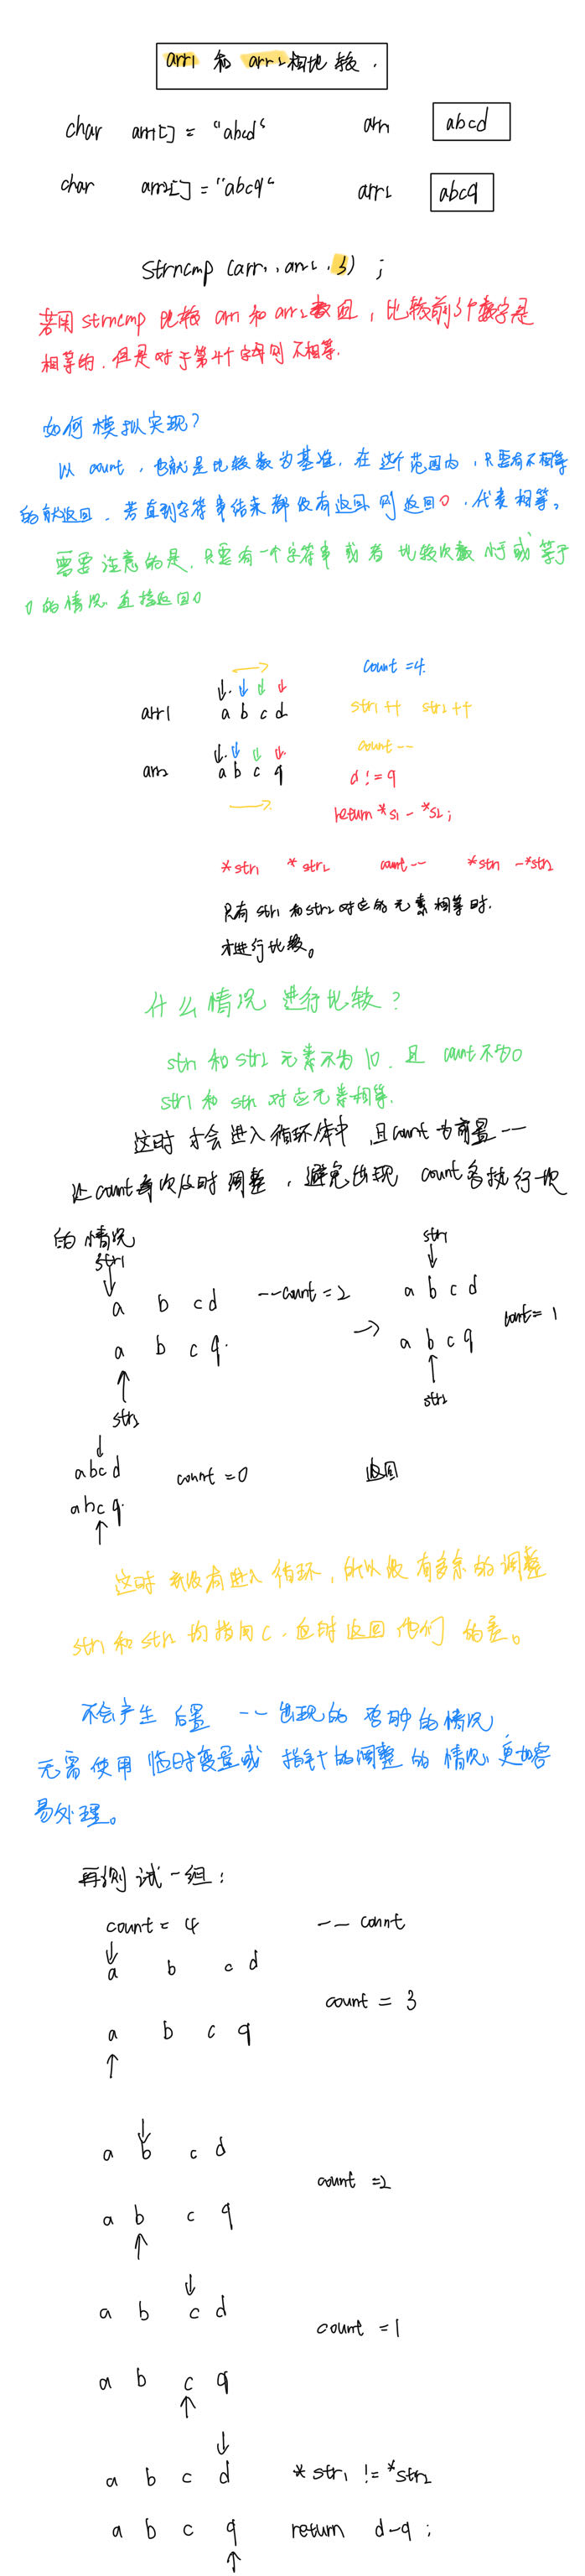 arr1 和 arr2相比较.
char arr1[] = "abcd" arr1 abcd
char arr2[] = "abcq" arr2 abcq
strncmp (arr1, arr2, 3) ;
若用 strncmp 比较 arr1 和 arr2 数组, 比较前3个数字是
相等的. 但是对于第4个字母则不相等.
如何模拟实现?
以 count, 也就是比较数为基准, 在这个范围内, 只要有不相等
的就返回. 若直到字符串结束都没有返回 则返回0. 代表相等。
需要注意的是. 只要有一个字符串或者 比较次数 小于或等于
0 的情况. 直接返回0
count =4.
arr1 a b c d str1 ++ str2 ++
count --
arr2 a b c q d != q
return *s1 - *s2;
*str1 *str2 count -- *str1 -*str2
只有 str1 和str2 对应的元素相等时.
才进行比较。
什么情况 进行比较?
str1 和 str2 元素不为 \0. 且 count不为0
str1 和 str2 对应元素相等.
这时才会进入循环体中, 且count 为前置 --
让count每次及时调整, 避免出现 count多执行一次
的情况
str1 str1
a b c d --count = 2 a b c d
a b c q. a b c q count = 1
str2 str2
abcd count =0 返回
abcq.
这时 我没有进入循环, 所以没有多余的调整
str1 和 str2 均指向 c. 应时返回他们 的差。
不会产生 后置 -- 出现的 的情况
无需使用临时变量或 指针的调整 的情况, 更加容
易处理。
再测试一组:
count = 4 -- count
a b c d
count = 3
a b c q
a b c d
count =2
a b c q
a b c d
count =1
a b c q
a b c d *str1 != *str2
a b c q return d-q ;